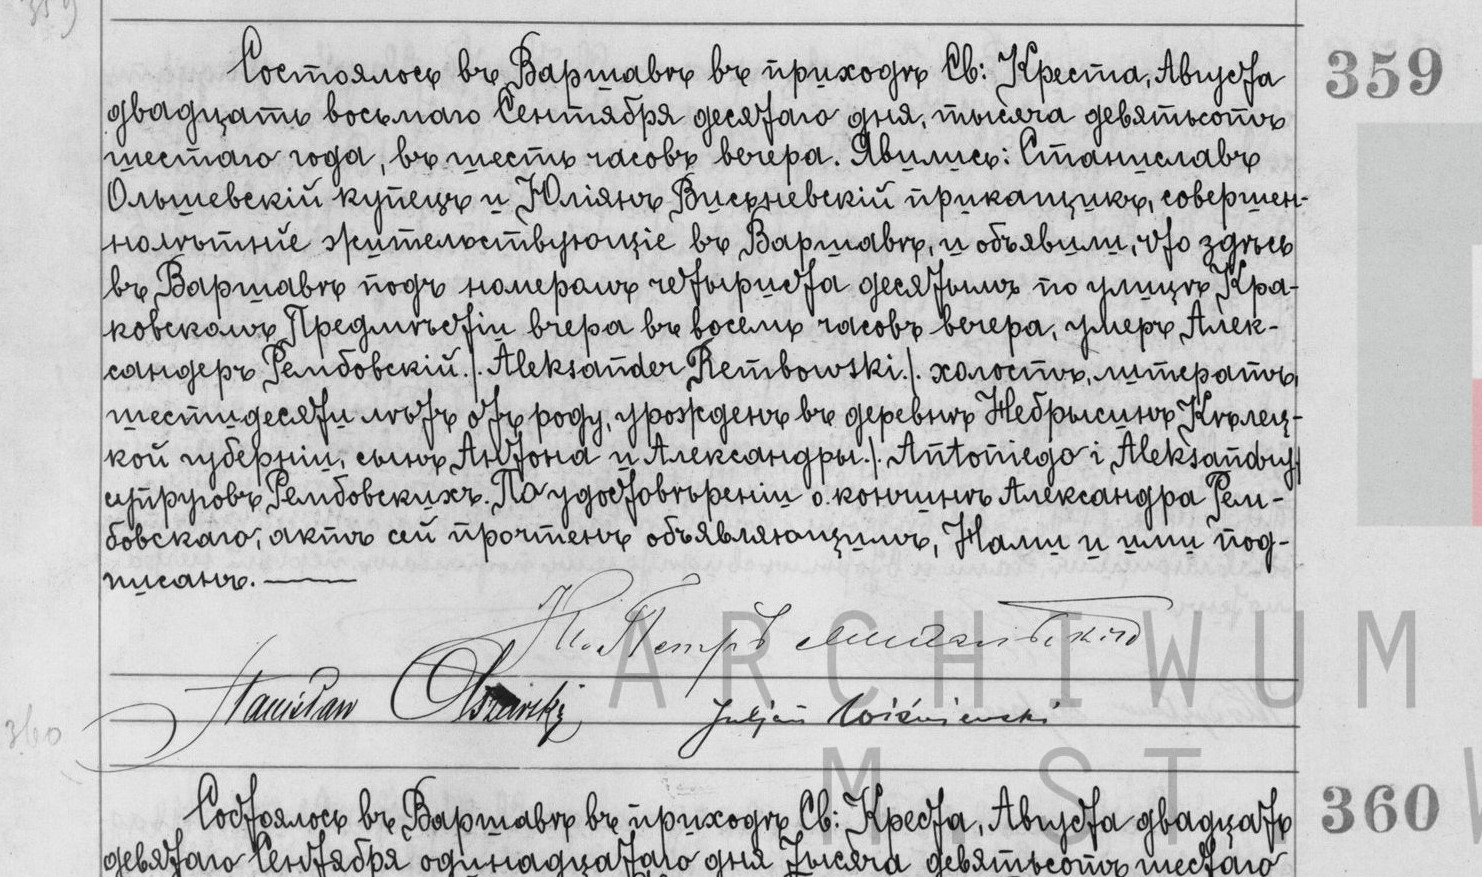 359
Состоялось въ Варшавѣ въ приходѣ Св: Креста, Августа
359
двадцать восьмаго Сентября десятаго дня, тысяча девятьсотъ
шестаго года, въ шесть часовъ вечера. Явились: Станиславъ
Ольшевскій купецъ и Юліянъ Висьневскій прикащикъ, совершен-
нолѣтніе жительствующіе въ Варшавѣ, и объявили, что здѣсь
въ Варшавѣ подъ номеромъ четыриста десятымъ по улицѣ Кра-
ковскомъ Предмѣстіи вчера въ восемь часовъ вечера, умеръ Алек-
сандеръ Рембовскій /. Aleksander Rembowski ./. холостъ, литератъ,
шестидесяти лѣтъ отъ роду, урожденъ въ деревнѣ Жебрысинѣ Кѣлец-
кой губерніи, сынъ Антона и Александры ./. Antoniego i Aleksandry /
супруговъ Рембовскихъ. По удостовѣреніи о кончинѣ Александра Рем-
бовскаго, актъ сей прочтенъ объявляющимъ, Нами и ими под-
писанъ.
Кс. Петръ
ARCHIWUM
Stanisław Olszewski
Juljan Wiśniewski
360
M ST W
Состоялось въ Варшавѣ въ приходѣ Св: Креста, Августа двадцать
360
девятаго Сентября одинадцатаго дня тысяча девятьсотъ шестаго